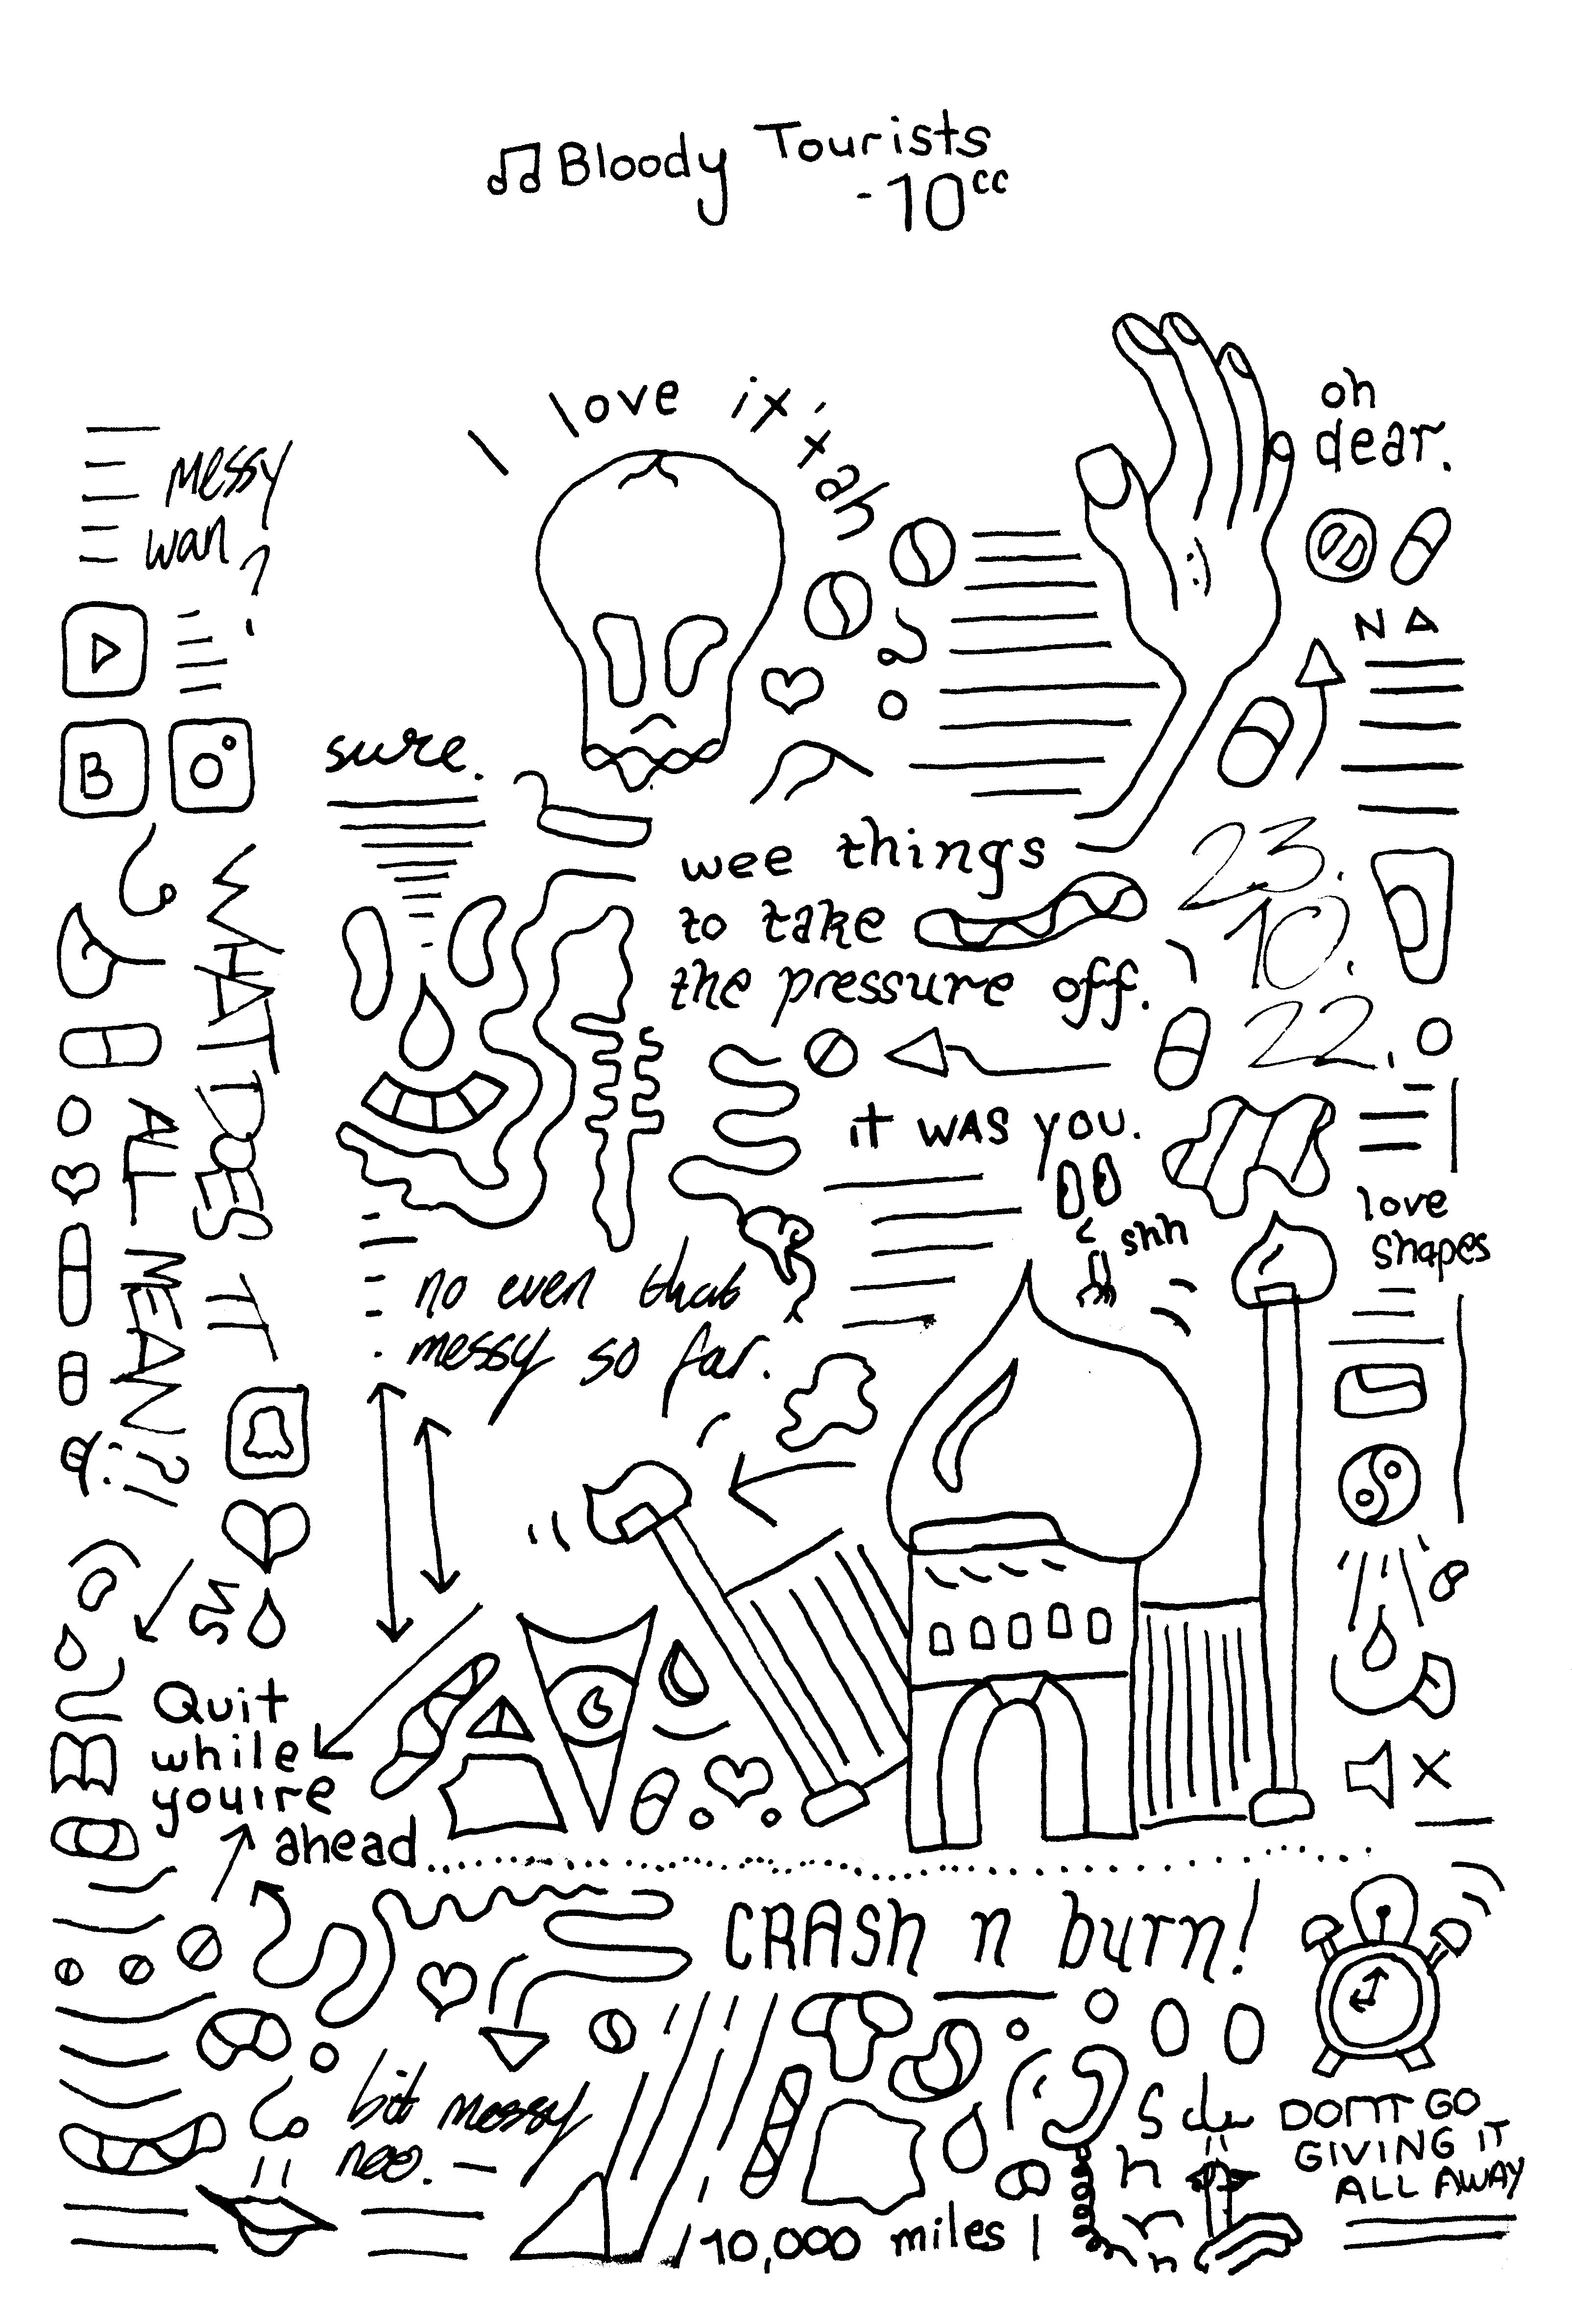 Bloody Tourists
-10cc
love ix'xah
oh
dear.
messy
wan?
:)
N
B
sure.
wee things
to take
the pressure off.
23.
10.
22.
WHAT DOES IT
ALL MEAN?!
it WAS YOU.
shh
love
shapes
no even that
messy so far.
Quit
while
you're
ahead
CRASh n burn!
bit messy
noo.
DONT GO
GIVING IT
ALL AWAY
10,000 miles